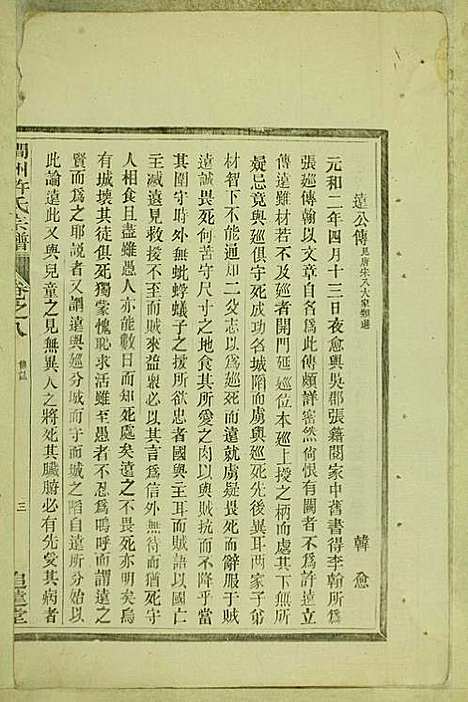 遠公傳見唐宋八大家類選
韓愈
元和二年四月十三日夜愈與吳郡張籍閱家中舊書得李翰所爲
張廵傳翰以文章自名爲此傳頗詳密然尚恨有闕者不爲許遠立
傳遠雖材若不及廵者開門延廵位本廵上授之柄而處其下無所
疑忌竟與廵俱守死成功名城陷而虜與廵死先後異耳兩家子弟
材智下不能通知二父志以爲廵死而遠就虜疑畏死而辭服于賊
遠誠畏死何苦守尺寸之地食其所愛之肉以與賊抗而不降乎當
其圍守時外無蚍蜉蟻子之援所欲忠者國與主耳而賊語以國亡
主滅遠見救援不至而賊來益衆必以其言爲信外無待而猶死守
人相食且盡雖愚人亦能數日而知死處矣遠之不畏死亦明矣烏
有城壞其徒俱死獨蒙愧恥求活雖至愚者不忍爲嗚呼而謂遠之
賢而爲之耶說者又謂遠與廵分城而守城之陷自遠所分始以
此詬遠此又與兒童之見無異人之將死其臟腑必有先受其病者
潤州許氏宗譜
卷之八
傳誌
三
追遠堂